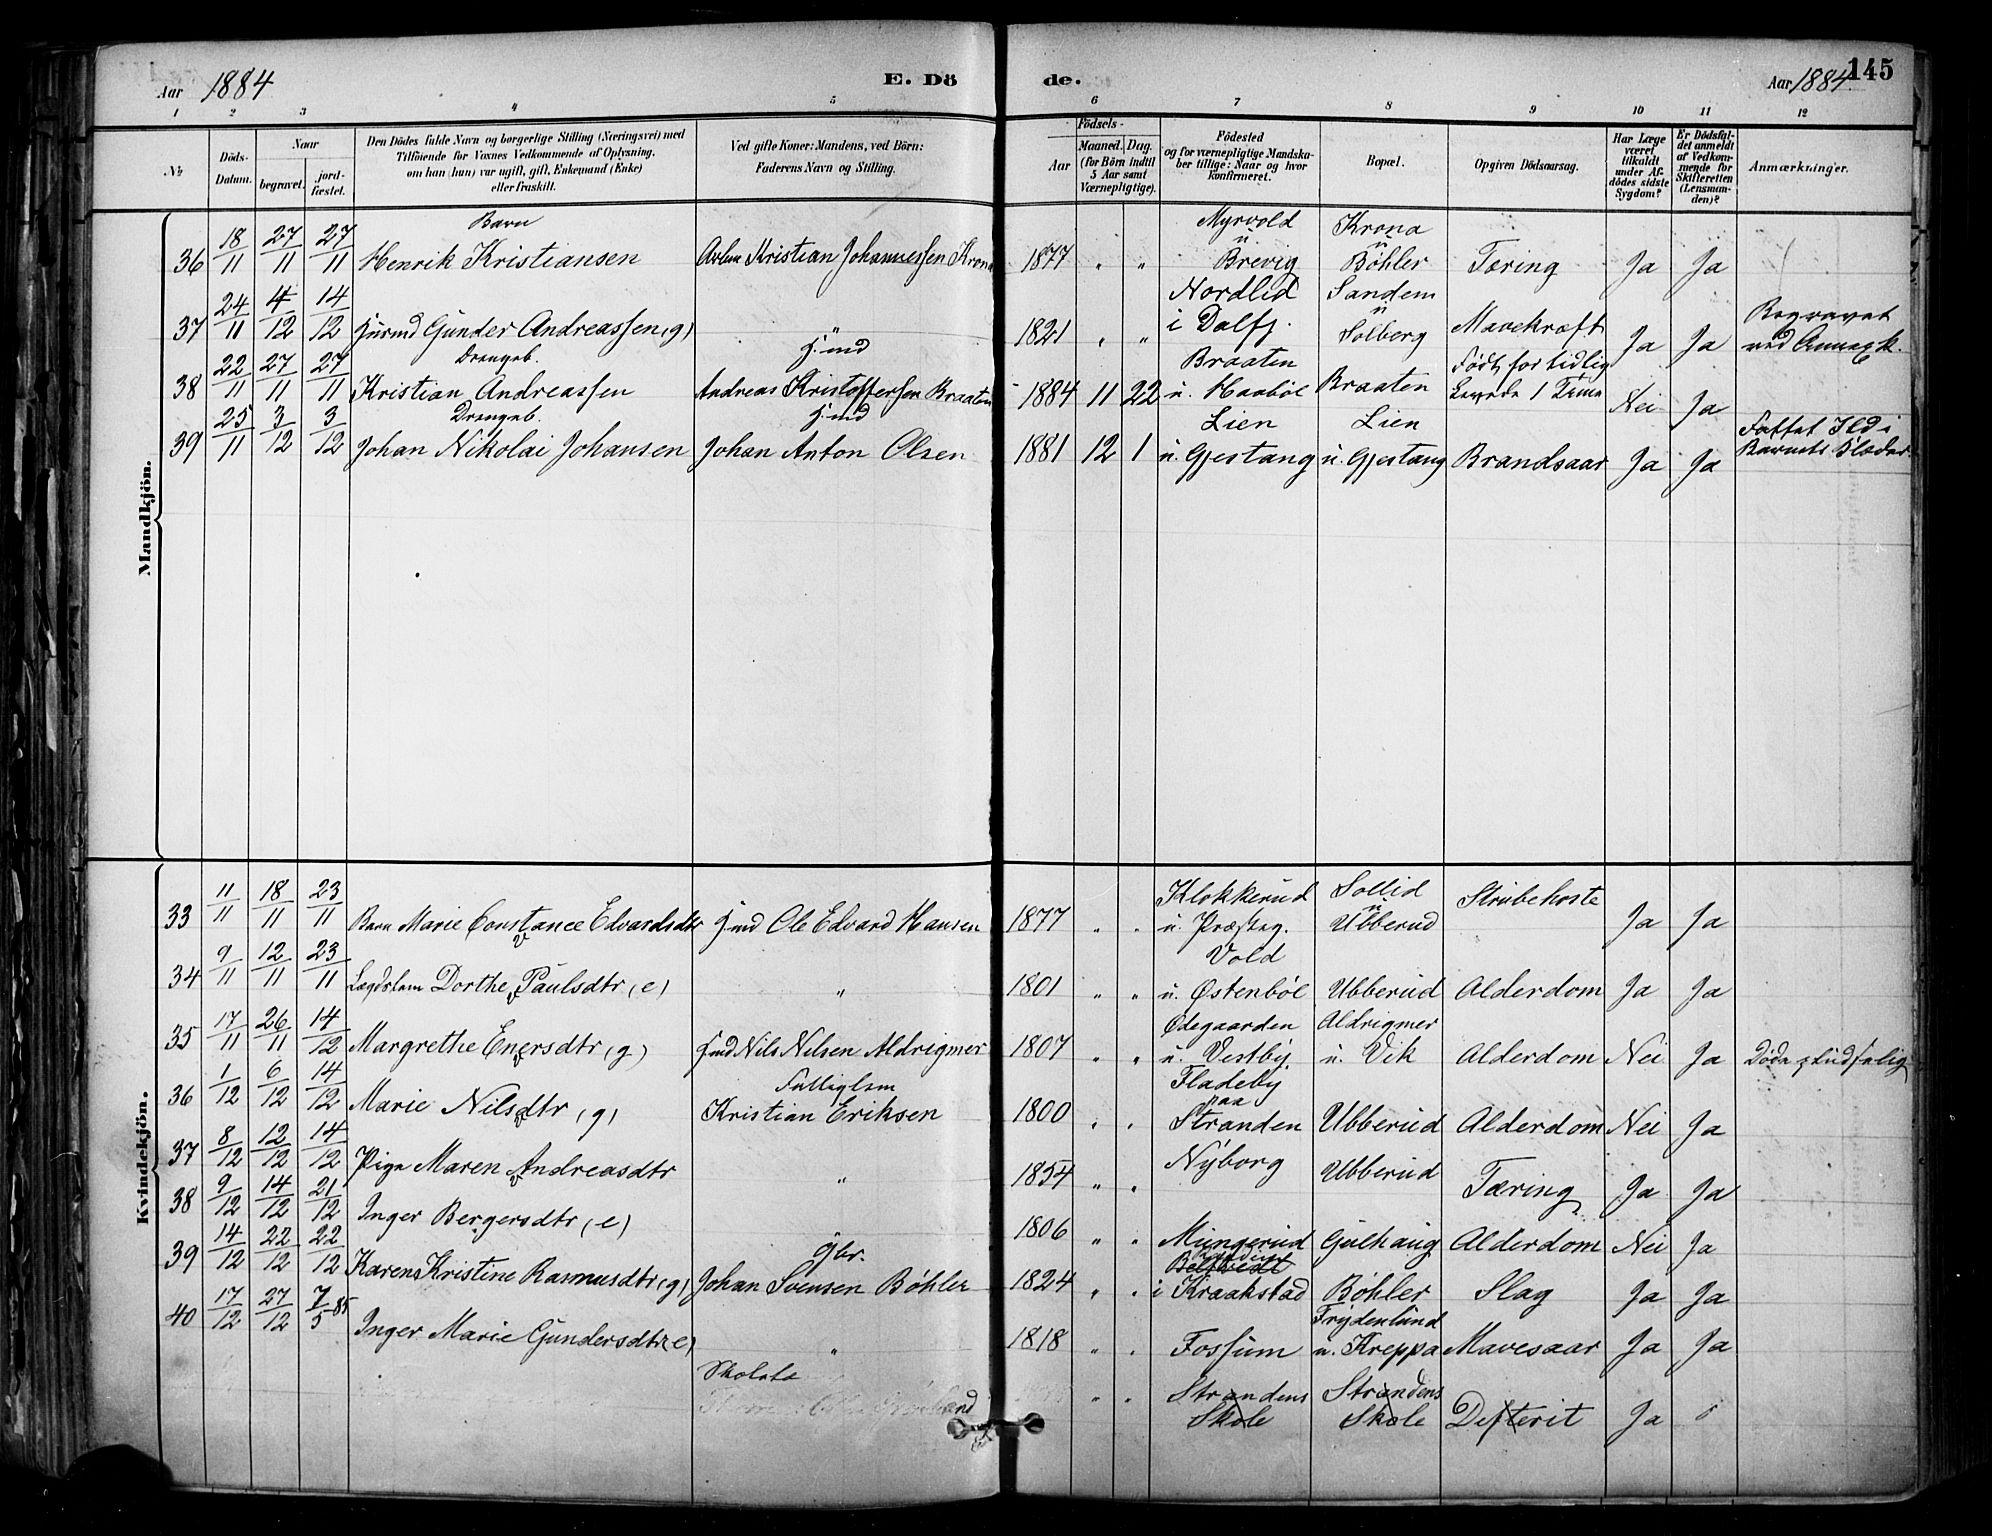 Aar 1884 E. Dö de. Aar 1884 145
1 2 3 4 5 6 7 8 9 10 11 12
№
Döds-Datum.
Naar
begravet.
jordfæstet.
Den Dödes fulde Navn og borgerlige Stilling (Næringsvei) med
Tilföiende for Voxnes Vedkommende af Oplysning,
om han (hun) var ugift, gift, Enkemand (Enke)
eller fraskilt.
Ved gifte Koner: Mandens, ved Börn:
Faderens Navn og Stilling.
Födsels-
Aar
Maaned. Dag.
(for Börn indtil
5 Aar samt
Værnepligtige).
Födested
og for værnepligtige Mandska-
ber tillige: Naar og hvor
Konfirmeret.
Bopæl.
Opgiven Dödsaarsag.
Har Læge
været
tilkaldt
under Af-
dödes sidste
Sygdom?
Er Dödsfal-
det anmeldt
af Vedkom-
mende for
Skifteretten
(Lensman-
den)?
Anmærkninger.
Mandkjön.
Barn
36 18/11 27/11 27/11 Henrik Kristiansen Kristian Johannessen Krona 1877 " " Myrvold u Brevig Krona u Bøhler Tæring Ja Ja
37 24/11 4/12 14/12 Husmd Gunder Andreassen (g) " 1821 " " Nordlid i Dalfj. Sandem u Solberg Mavekræft Ja Ja Begravet ved Annexk.
Drengeb. Hsmd
38 22/11 27/11 27/11 Kristian Andreassen Andreas Kristoffersen Braaten 1884 11 22 Braaten u. Haabøl Braaten Født for tidlig Levede 1 Time Nei Ja
Drengeb. Hsmd
39 25/11 3/12 3/12 Johan Nikolai Johansen Johan Anton Olsen 1881 12 1 Lien u. Gjestang Lien u. Gjestang Brandsaar Ja Ja Fattet Ild i Barnets Klæder.
Kvindekjön.
33 11/11 18/11 23/11 Barn Marie Constance Edvardsdtr Hsmd Ole Edvard Hansen 1877 " " Klokkerud u. Præsteg. Sollid u Ubberud Strubehoste Ja Ja
34 9/11 12/11 23/11 Lægdslem Dorthe Paulsdtr (e) " 1801 " " Vold u. Østenbøl Ubberud Alderdom Ja Ja
35 17/11 26/11 14/12 Margrethe Enersdtr (g) Hsmd Nils Nilsen Aldrigmer 1807 " " Ødegaarden u. Vestby Aldrigmer u. Vik Alderdom Nei Ja Døde pludselig
Fattiglem
36 1/12 6/12 14/12 Marie Nilsdtr (g) Kristian Eriksen 1800 " " Fladeby paa Stranden Ubberud Alderdom Nei Ja
37 8/12 12/12 14/12 Pige Maren Andreasdtr " 1854 " " Nyborg Ubberud Tæring Ja Ja
38 9/12 14/12 21/12 Inger Bergersdtr (e) 1806 " " Mungerud Gulhaug Alderdom Nei Ja
Gbr.
39 14/12 22/12 22/12 Karen Kristine Rasmusdtr (g) Johan Svensen Bøhler 1824 " " i Kraakstad Bøhler Slag Ja Ja
40 17/12 27/12 7/5 85 Inger Marie Gundersdtr (e) " 1818 " " Fossum Frydenlund u. Kreppa Mavesaar Ja Ja
Skolel " " Strandens Skole Strandens Skole Difterit Ja